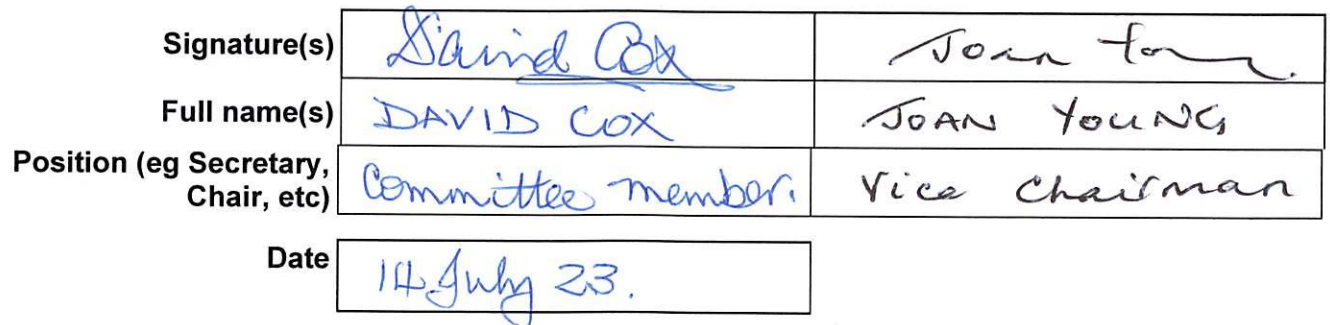 Signature(s) David Cox Joan
Full name(s) DAVID COX JOAN YOUNG
Position (eg Secretary,
Chair, etc) Committee member. Vice Chairman
Date 14 July 23.